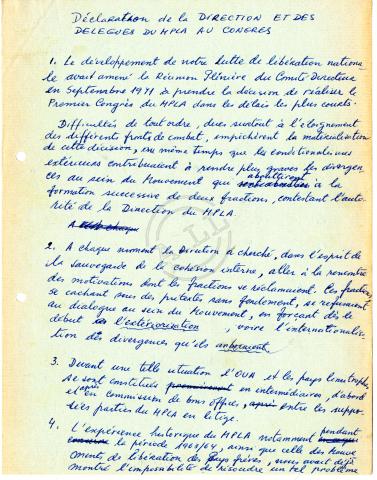 Déclaration de la DIRECTION ET DES
DELEGUES DU MPLA AU CONGRES
1. Le développement de notre lutte de libération nationa-
le avait amené la Réunion Plénière du Comité Directeur
en Septembre 1971 à prendre la décision de réaliser le
Premier Congrès du MPLA dans les délais les plus courts.
Difficultés de tout ordre, dues surtout à l'éloignement
des différents fronts de combat, empêchèrent la matérialisation
de cette décision, au même temps que les conditionalismes
extérieurs contribuaient à rendre plus graves les divergen-
ces au sein du Mouvement qui aboutirent à la
formation successive de deux fractions, contestant l'auto-
rité de la Direction du MPLA.
2. A chaque moment la Direction a cherché, dans l'esprit de
la sauvegarde de la cohésion interne, aller à la rencontre
des motivations dont les fractions se réclamaient. Ces fractions,
se cachant sous des pretextes sans fondement, se refusaient
au dialogue au sein du Mouvement, en forçant dès le
début l'extériorisation, voire l'internationalisa-
tion des divergences qu'ils
3. Devant une telle situation l'OUA et les pays limitrophes
se sont constitués en intermédiaires, d'abord
et après en commission de bons offices, entre les suppo-
sées parties du MPLA en litige.
4. L'expérience historique du MPLA notamment pendant
la période 1963/64, ainsi que celle des Mouve-
ments de libération des Pays frères, nous avait déjà
montré l'impossibilité de résoudre un tel problème